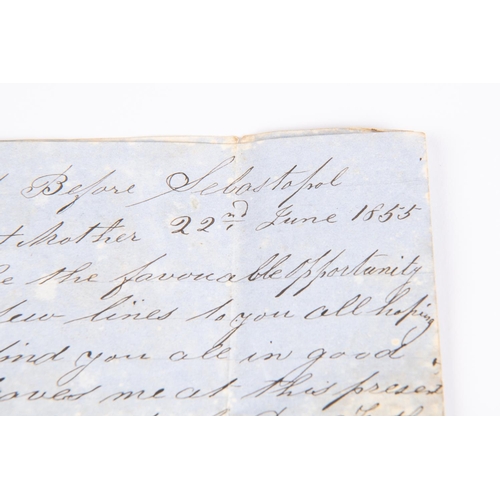 Before Sebastopol
Mother 22nd June 1855
the favouable Opportunity
few lines to you all hoping
find you all in good
leaves me at this presen